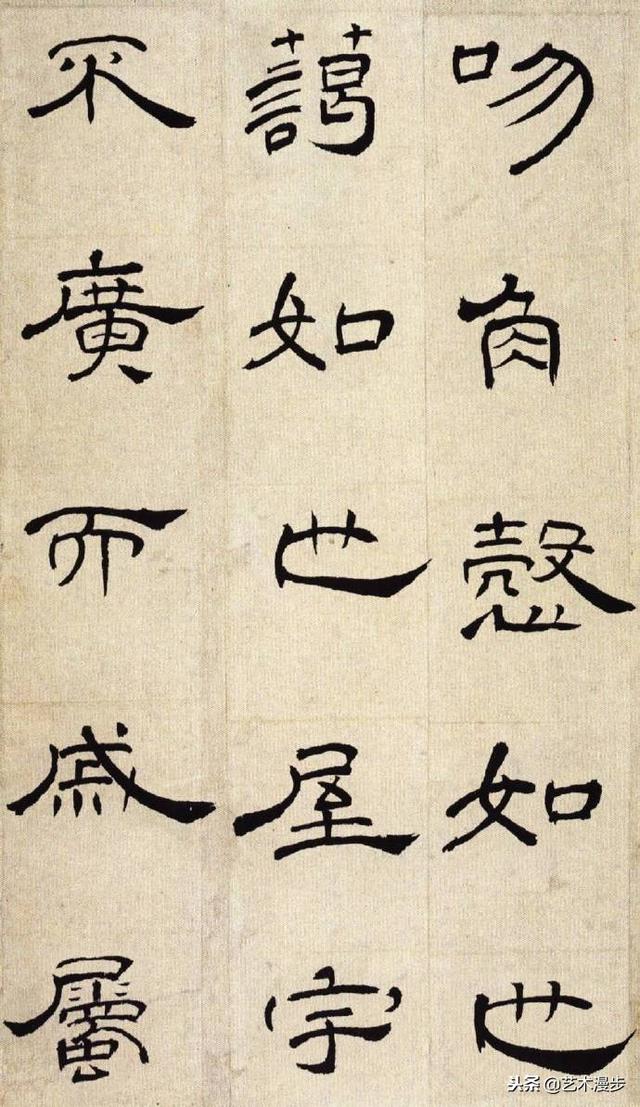 吻角慤如也
藹如也屋宇
不廣而戚屬
头条 @艺术漫步